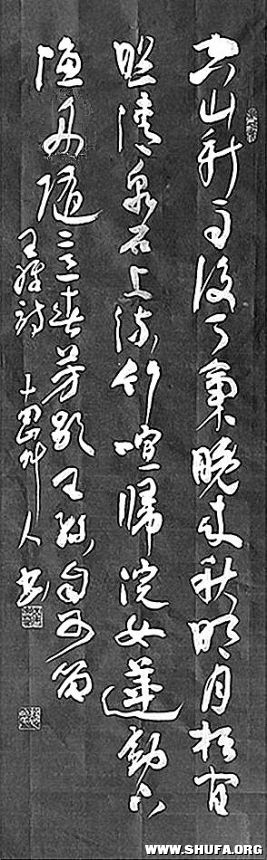 空山新雨後天氣晚來秋明月松間
照清泉石上流竹喧歸浣女蓮動下
漁舟隨意春芳歇王孫自可留
王維詩 人書
WWW.SHUFA.ORG